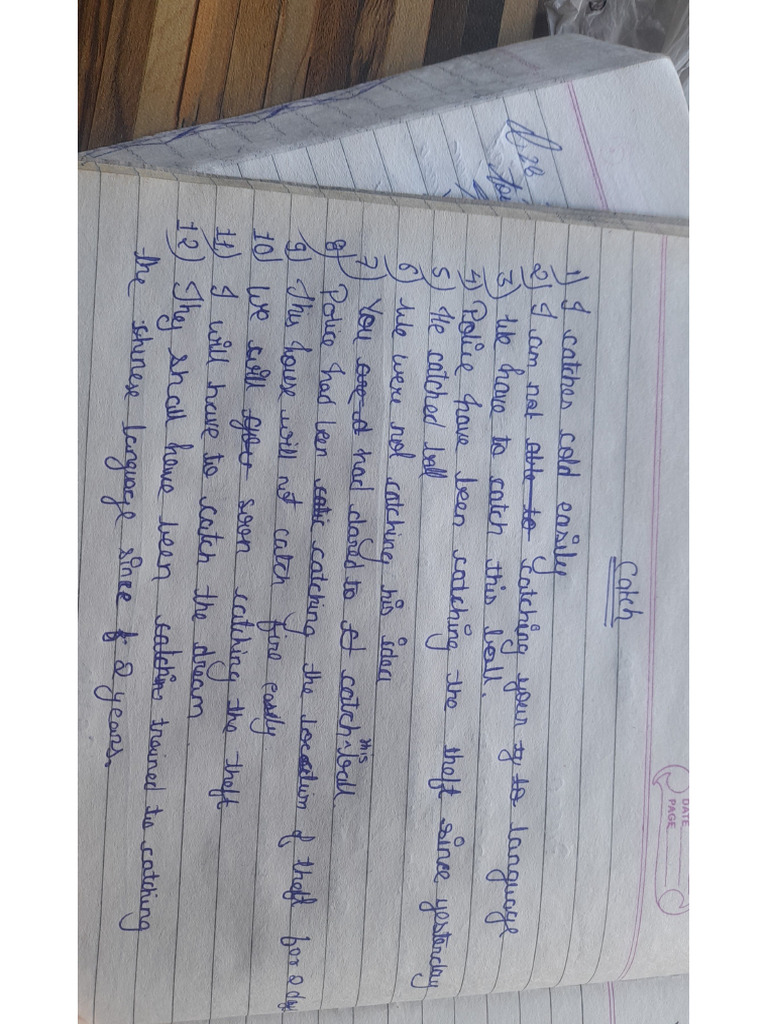 DATE
PAGE
Catch
1) I catches cold easily
2) I am not able to catching your ty to language
3) We have to catch this ball.
4) Police have been catching the theft since yesterday
5) He catched ball
6) We were not catching his idea
7) You had dared to catch this ball
8) Police had been catching the location of theft for 2 day
9) This house will not catch fire easily
10) We will soon catching the theft
11) I will have to catch the dream
12) They shall have been catching trained to catching
the chinese language since 2 years.